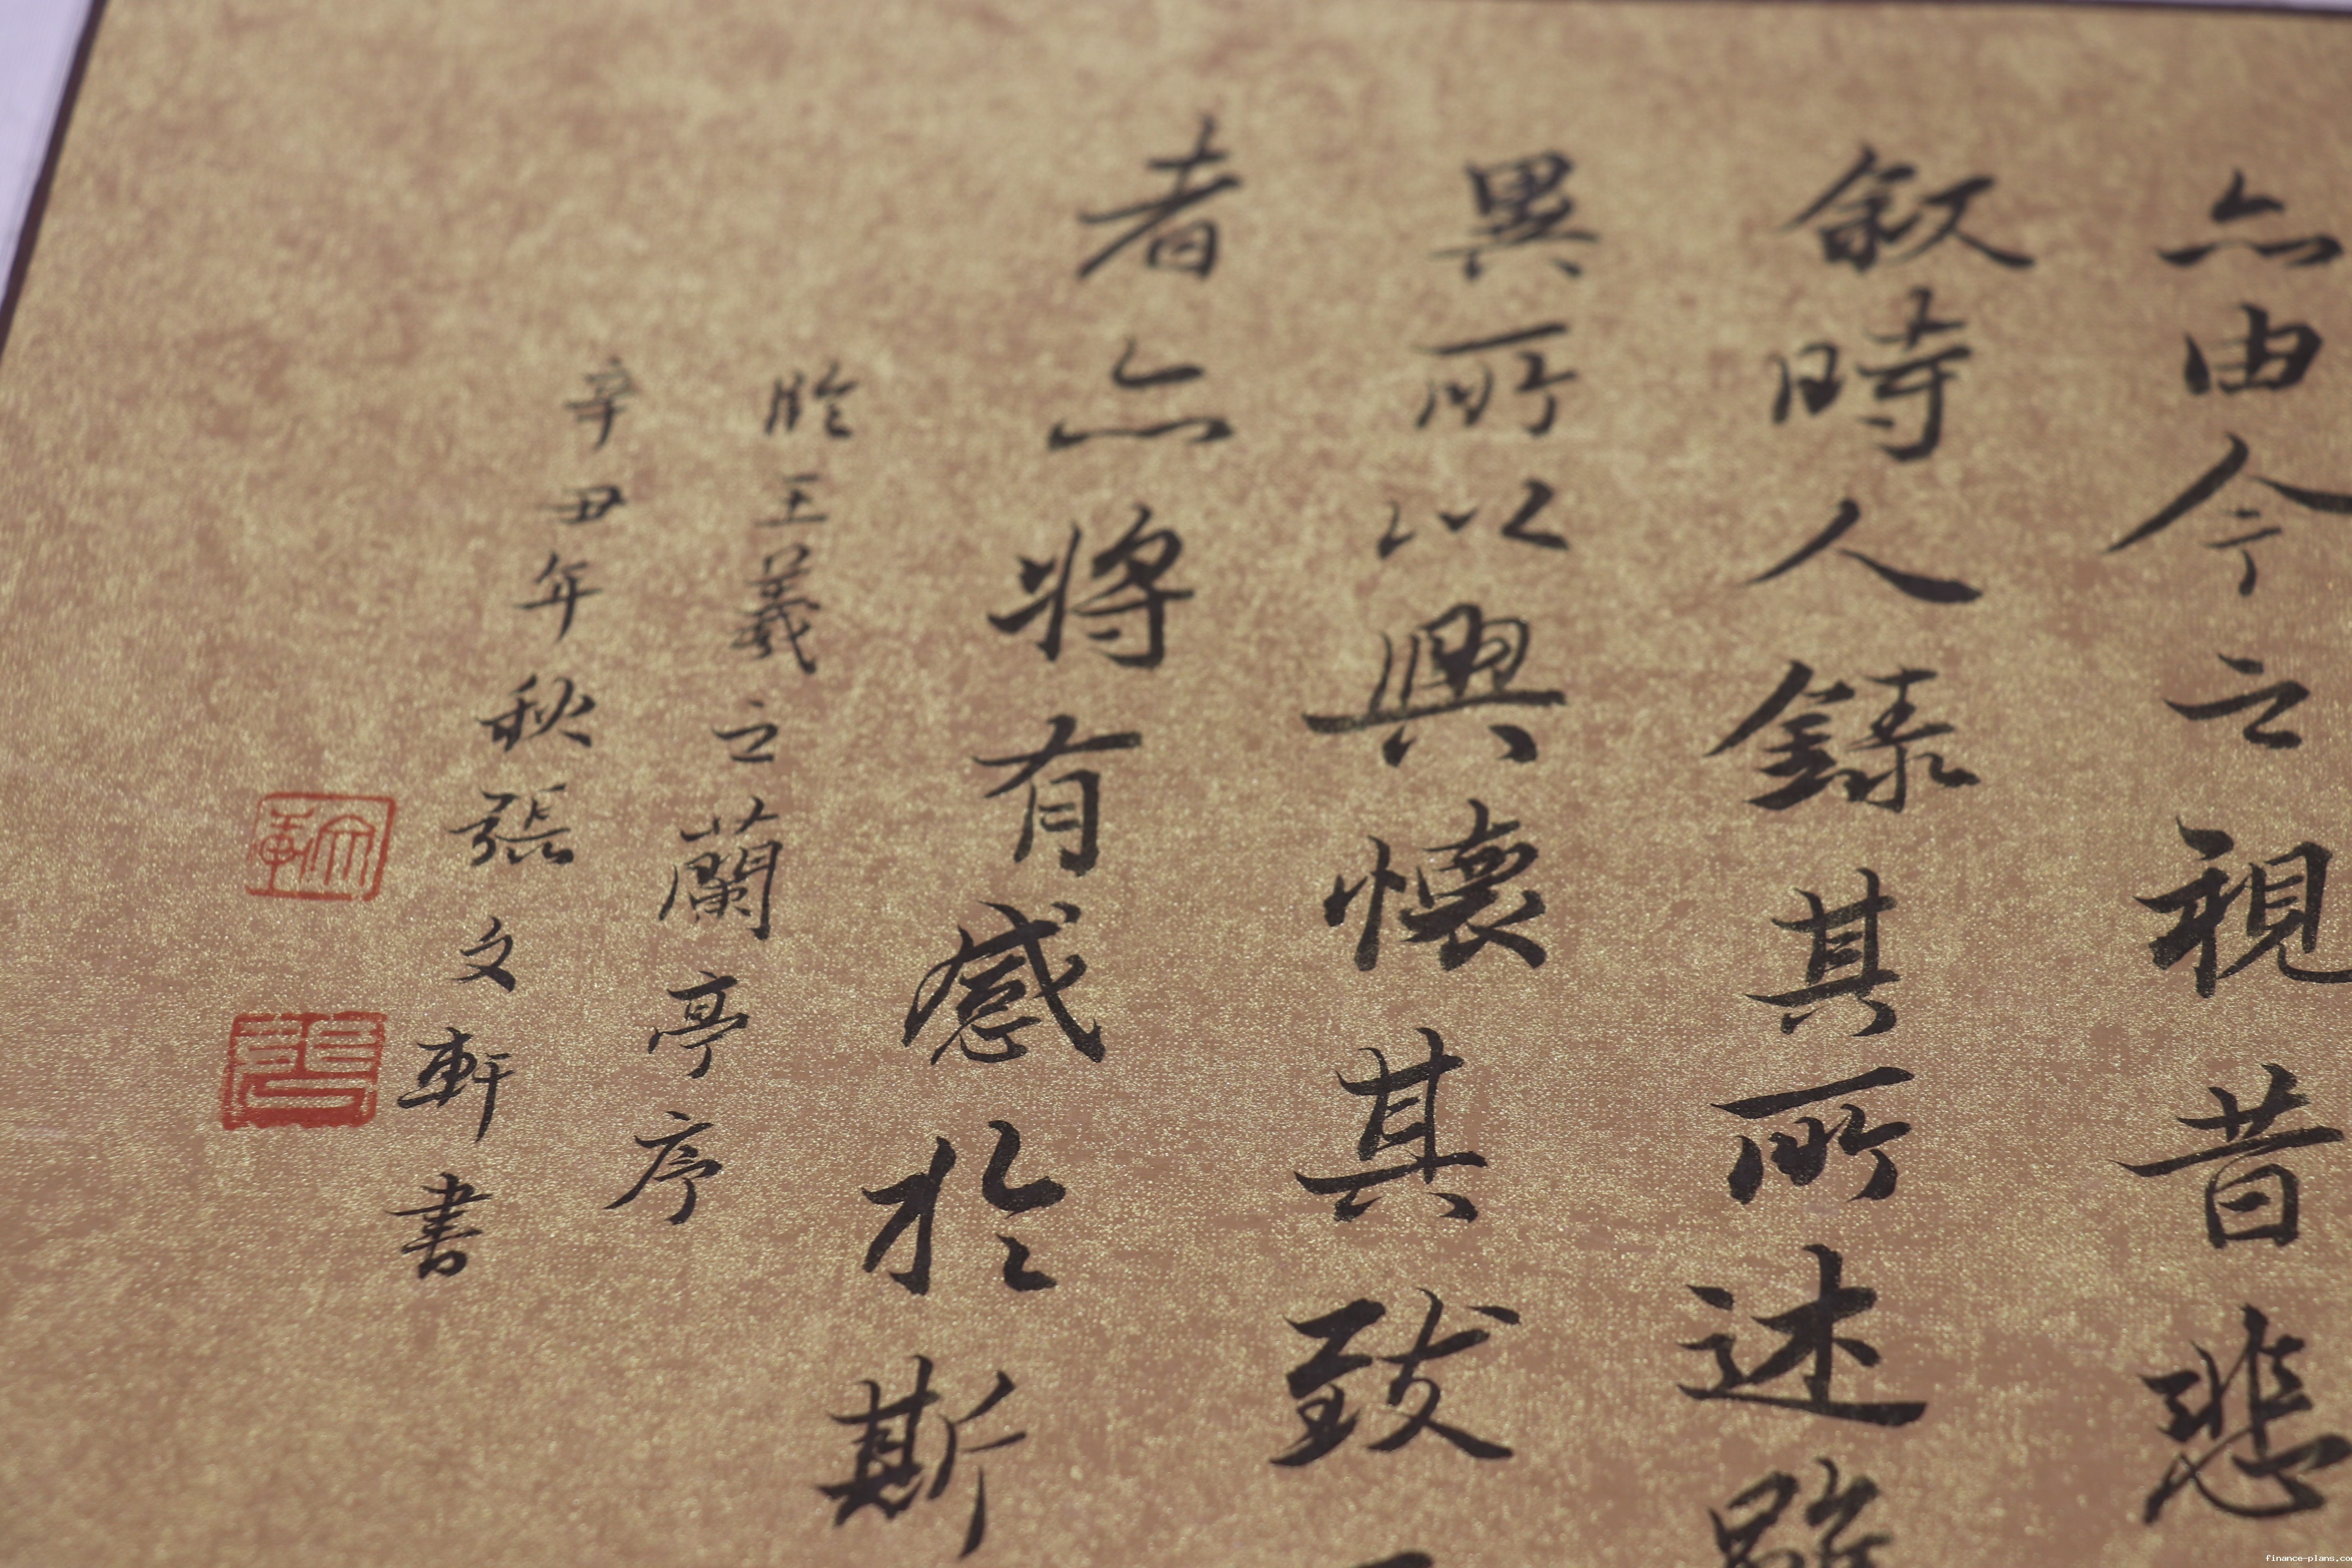 亦由今之視昔悲
叙時人錄其所述雖
異所以興懷其致
者亦將有感於斯
臨王羲之蘭亭序
辛丑年秋張文軒書
finance-plans.co